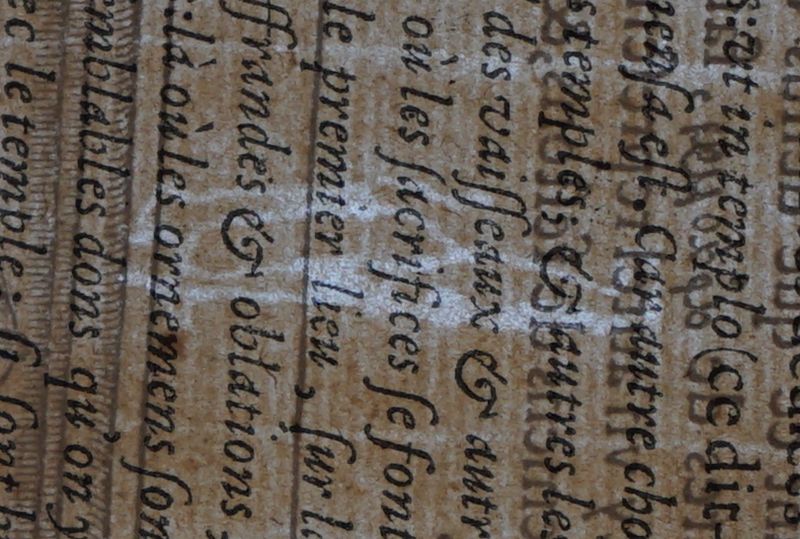 vt in templo (ce dit-
menſa eſt. Car autre cho
temples: & autres les
des vaiſſeaux & autr
où les ſacrifices ſe font
le premier lieu, ſur l
ffrandes & oblations,
là où les ornemens ſon
mblables dons qu'on y
ec le temple